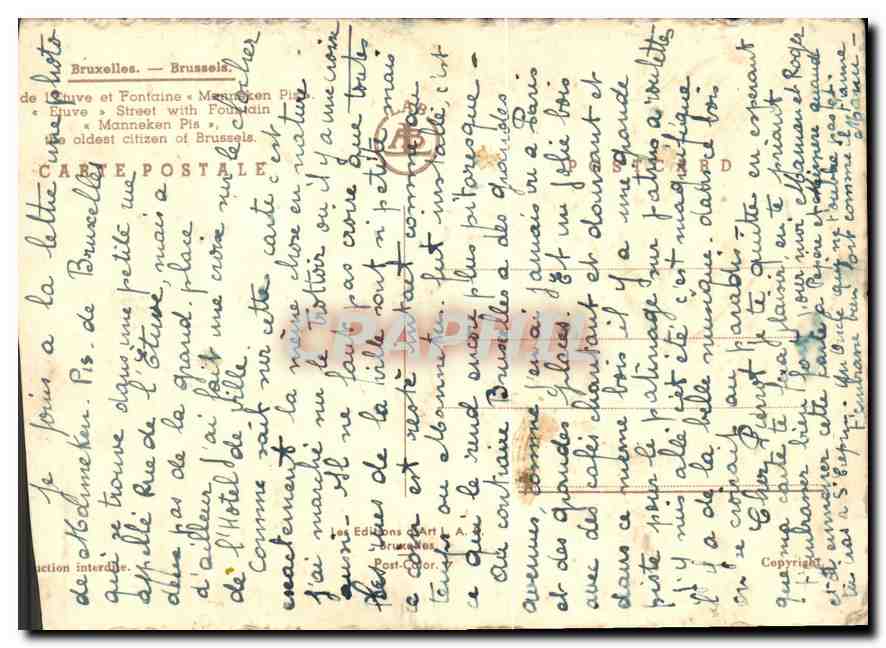 Bruxelles. — Brussels.
de l'Etuve et Fontaine « Manneken Pis ».
« Etuve » Street with Fountain
« Manneken Pis »,
oldest citizen of Brussels.
CARTE POSTALE
P ST C RD
Les Editions d'Art L. A.
Bruxelles
Post-Color. 17
uction interdite.
Copyright
CPAPHIL
je joins a la lettre une photo
de Manneken. Pis. de Bruxelles
qui se trouve dans une petite rue
appellé Rue de l'Étuve, mais a
deux pas de la grand. place
d'ailleur j'ai fait une croix sur le clocher
de l'Hôtel de ville.
Comme sait sur cette carte c'est
exactement la même chose en nature
j'ai marché sur le trottoir ou il y a une croix
aussi. Il ne faut pas croire que toutes
les rues de la ville sont si petite mais
cela est resté intact comme au
temps ou Mannekus. fut installé, c'est
ce qui le rend encor plus pitoresque -
Au contraire Bruxelles a des grandes
avenus, comme j'en ai jamais vu a Paris
et des grandes places. Et un jolie bois
avec des cafés chantant et dansant et
dans ce même bois il y a une grande
piste pour le patinage sur patins a roulettes
j'y suis allé cet été c'est magnifique
il y a de la belle musique. dans ce bois
on se croirait au paradis -
Cher Pierrot je te quitte en esperant
que ma carte te fera plaisir en te priant
d'embrasser bien fort pour moi Maman et Roger
et de emmener cette carte a
tu iras a St Cupr.
t'embrasse bien fort comme il t'aime